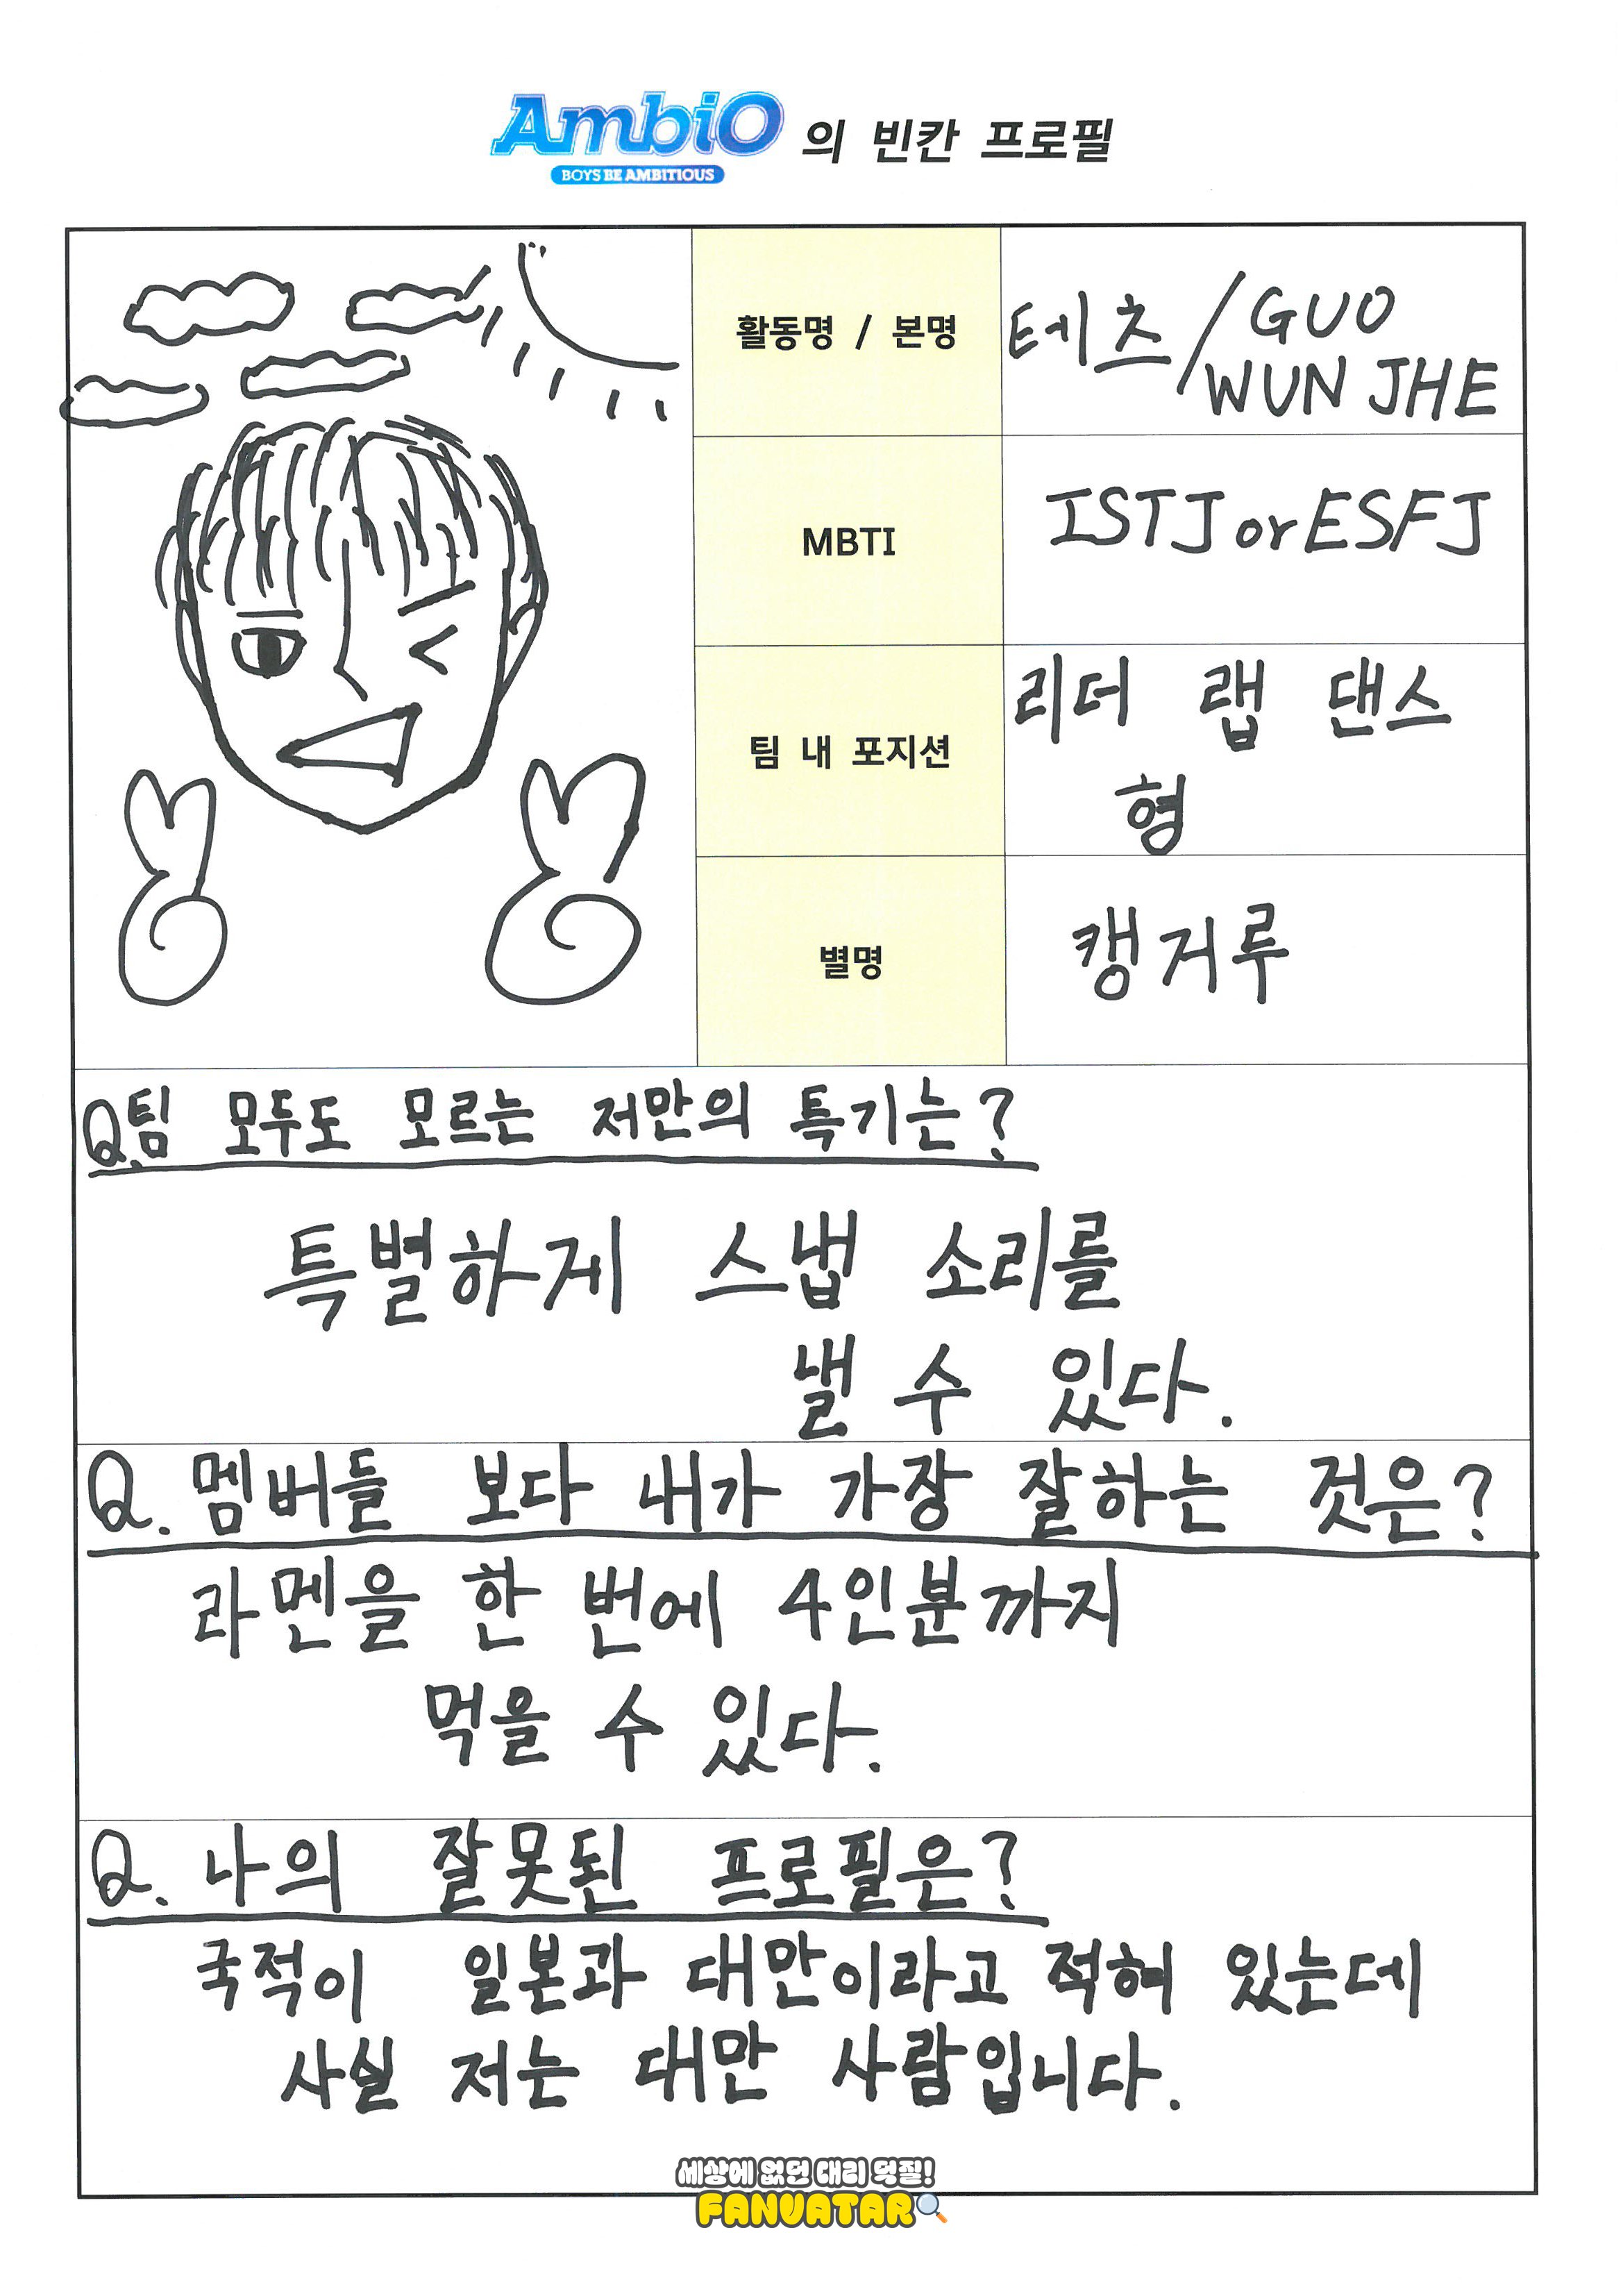 AmbiO 의 빈칸 프로필
BOYS BE AMBITIOUS
활동명 / 본명
테츠/GUO
WUN JHE
MBTI
ISTJ or ESFJ
팀 내 포지션
리더 랩 댄스
형
별명
캥거루
Q.팀 모두도 모르는 저만의 특기는?
특별하게 스냅 소리를
낼 수 있다.
Q. 멤버들 보다 내가 가장 잘하는 것은?
라멘을 한 번에 4인분까지
먹을 수 있다.
Q. 나의 잘못된 프로필은?
국적이 일본과 대만이라고 적혀 있는데
사실 저는 대만 사람입니다.
세상에 없던 대리 덕질!
FANVATAR